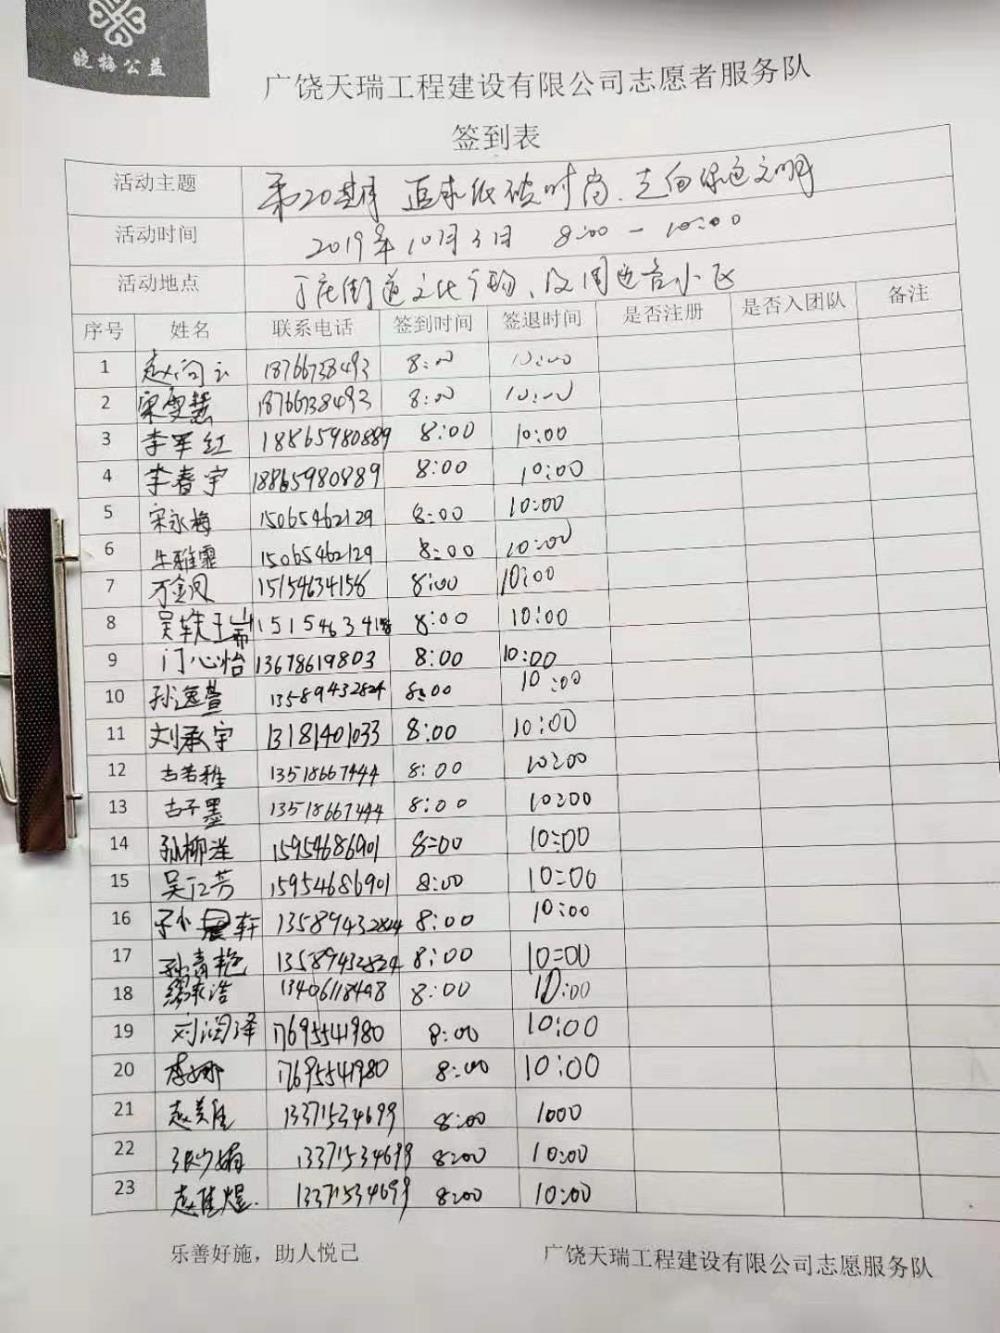 晓梅公益
广饶天瑞工程建设有限公司志愿者服务队
签到表
活动主题 第20期 追求低碳时尚、走向绿色文明
活动时间 2019年10月3日 8:00-10:00
活动地点 丁庄街道文化广场、及周边各小区
序号 姓名 联系电话 签到时间 签退时间 是否注册 是否入团队 备注
1 赵向云 18766738493 8:00 10:00
2 宋雯慧 18766738493 8:00 10:00
3 李军红 18865980889 8:00 10:00
4 李春宇 18865980889 8:00 10:00
5 宋永梅 15065462129 8:00 10:00
6 牛雅霏 15065462129 8:00 10:00
7 万金凤 15154634158 8:00 10:00
8 吴轶瑞 8:00 10:00
9 门心怡 13678619803 8:00 10:00
10 孙逸萱 13589432824 8:00 10:00
11 刘承宇 13181401033 8:00 10:00
12 古若雅 13518667444 8:00 10:00
13 古子墨 13518667444 8:00 10:00
14 孙柳洋 15954686901 8:00 10:00
15 吴江芳 15954686901 8:00 10:00
16 轩 13589432824 8:00 10:00
17 孙青艳 13589432824 8:00 10:00
18 浩 13406118498 8:00 10:00
19 刘润泽 17695541980 8:00 10:00
20 李娜 17695541980 8:00 10:00
21 赵美 13371534699 8:00 1000
22 张少娟 13371534699 8:00 10:00
23 赵佳煜. 13371534699 8:00 10:00
乐善好施，助人悦己 广饶天瑞工程建设有限公司志愿服务队